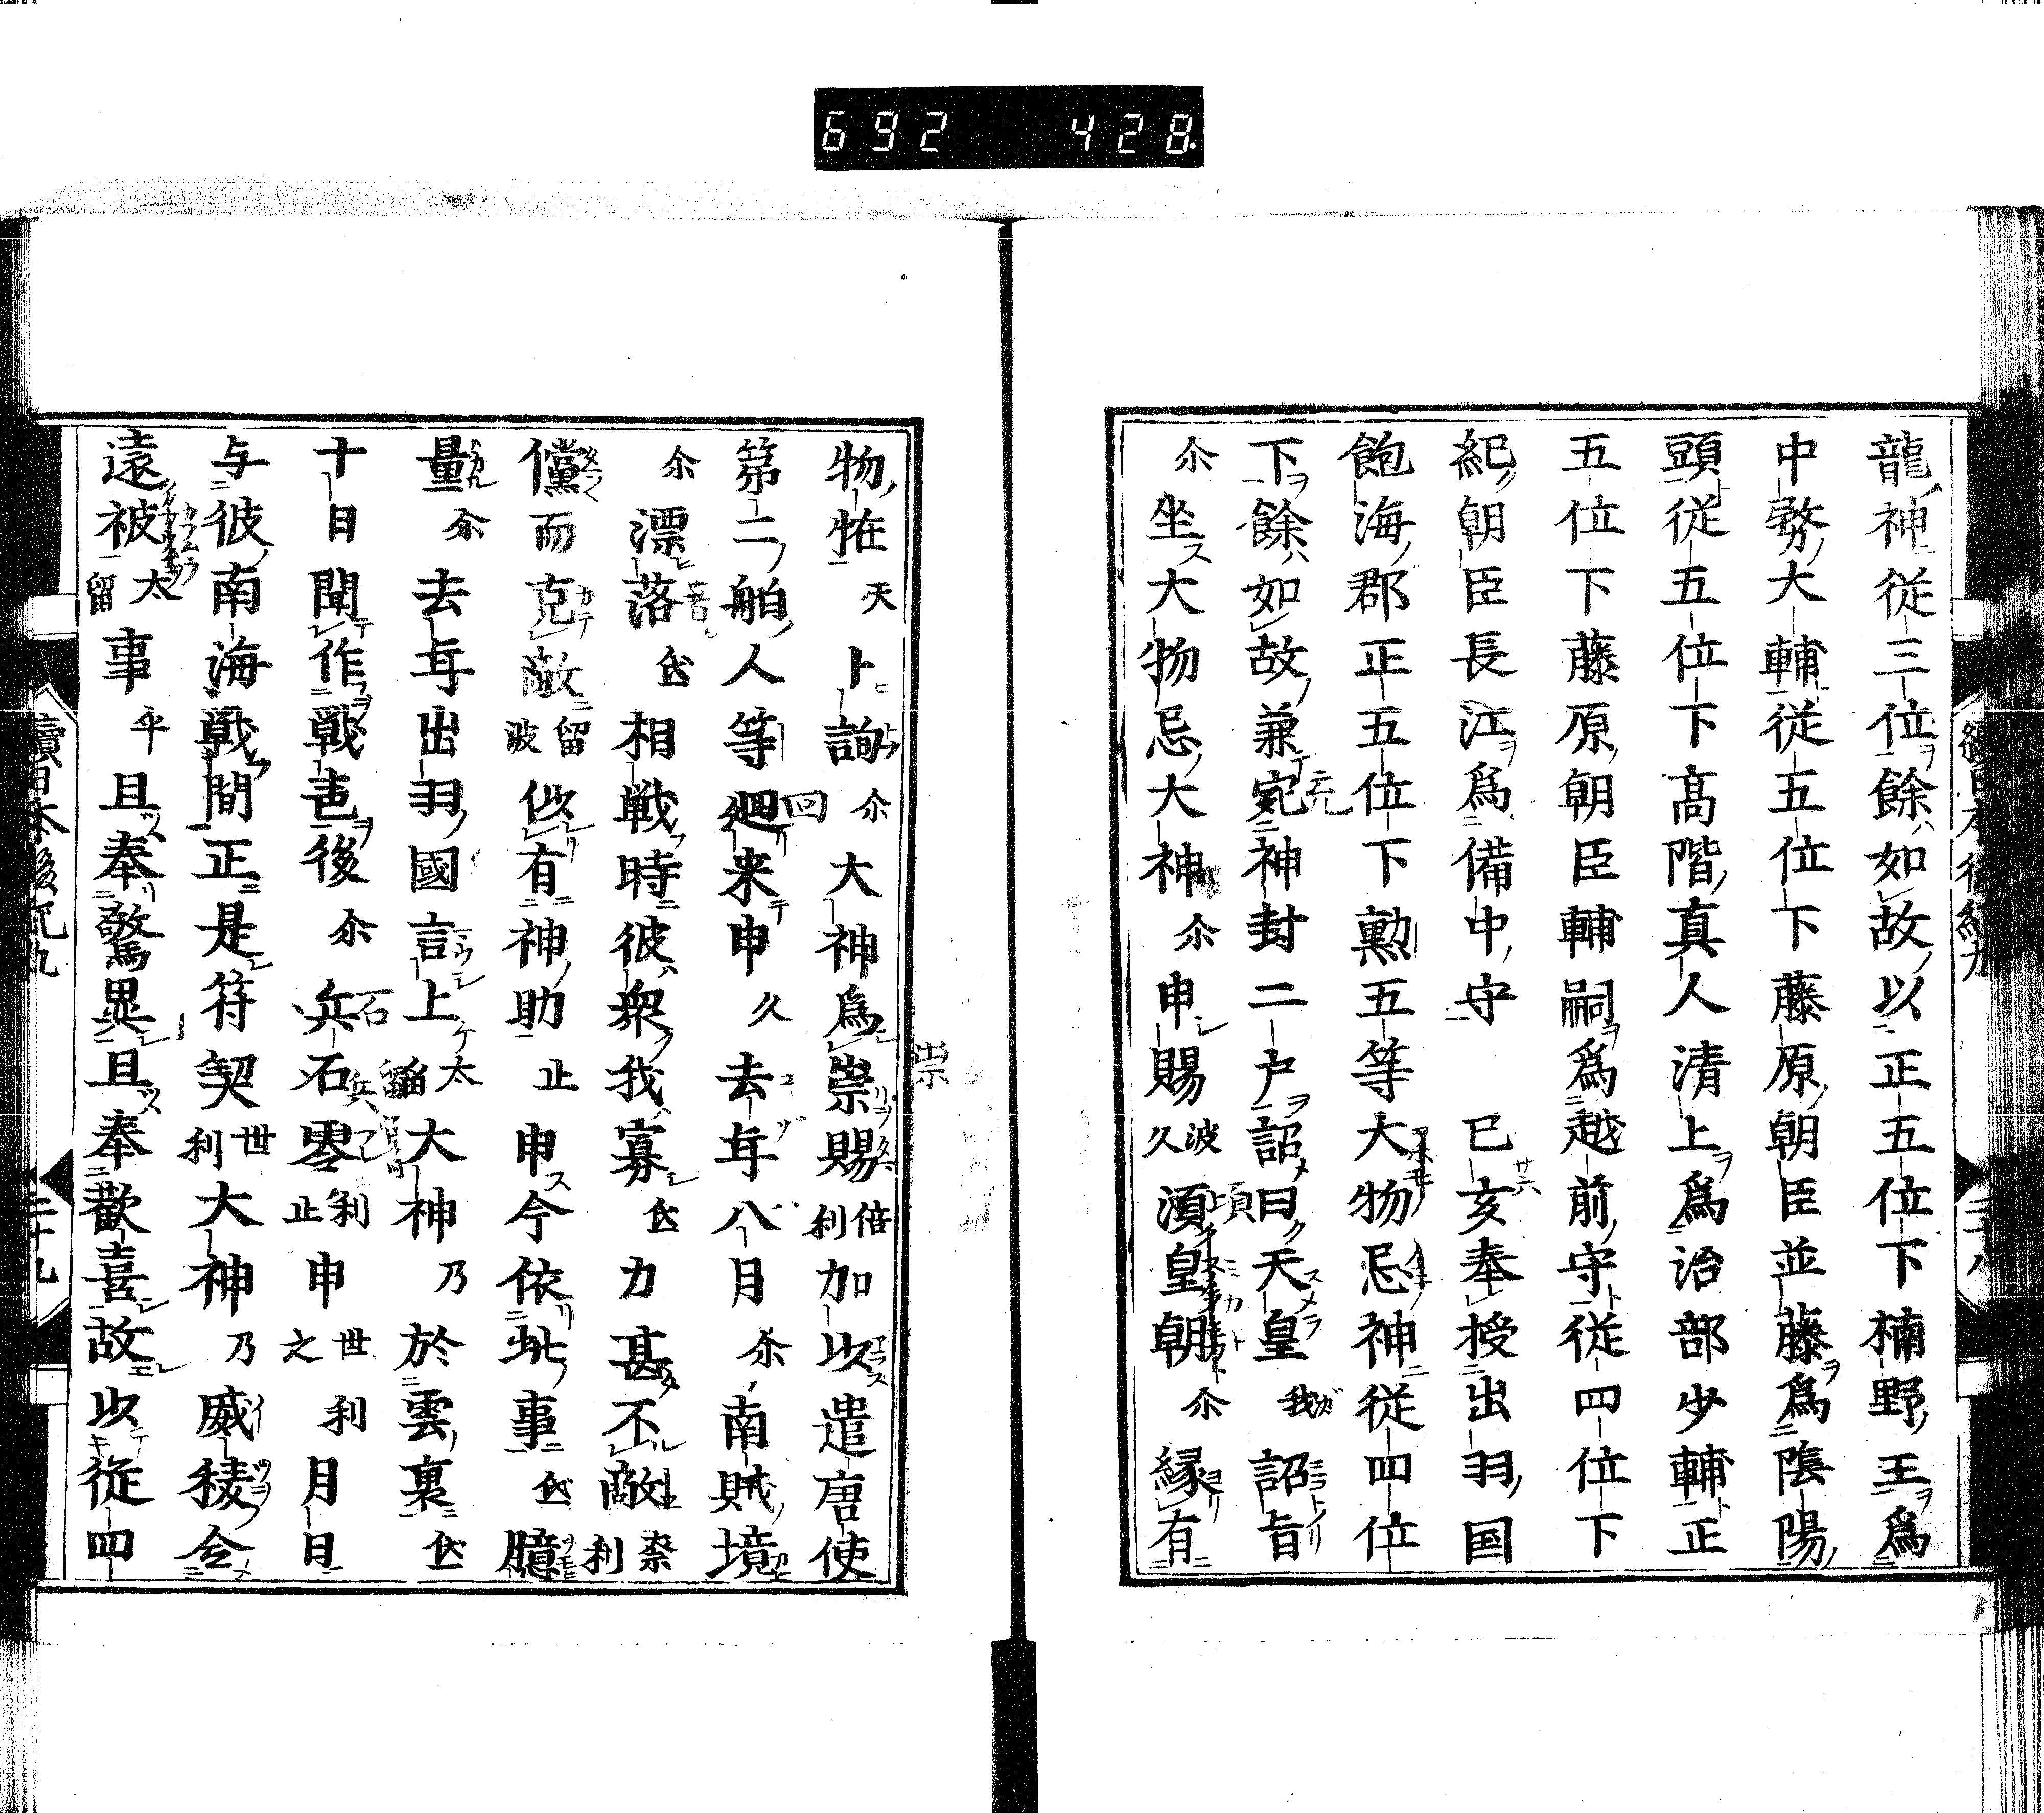 692 428
龍神従三位餘如故以正五位下楠野王爲
中務大輔従五位下藤原朝臣並藤爲陰陽
頭従五位下髙階真人清上爲治部少輔正
五位下藤原朝臣輔嗣爲越前守従四位下
紀朝臣長江爲備中守　已亥奉授出羽国
飽海郡正五位下勲五等大物忌神従四位
下餘如故兼宛神封二戸詔曰天皇我詔旨
尓坐大物忌大神尓申賜波久湏皇朝尓縁有
物恠天卜詢尓大神爲崇賜倍利加以遣唐使
第二舶人等廻来申久去年八月尓南賊境
尓漂落弖相戦時彼衆我寡弖力甚不敵奈利
儻而克敵留波似有神助止申今依此事弖臆
量尓去年出羽國言上太留大神乃於雲裏弖
十日間作戦聲後尓兵石零利止申世之利月日
与彼南海戦間正是符契世利大神乃威稜令
遠被太留事乎且奉驚異且奉歡喜故以従四